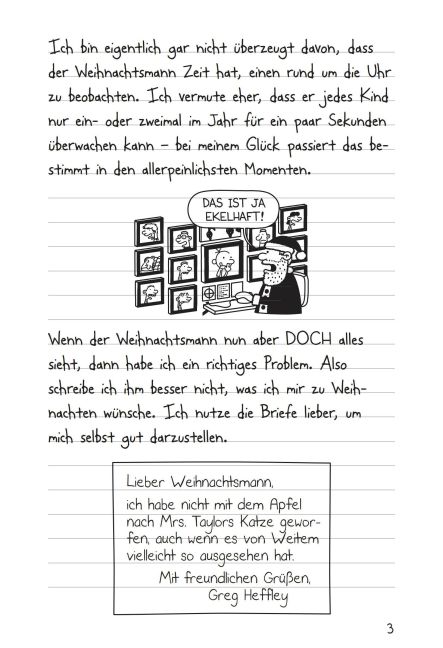 Ich bin eigentlich gar nicht überzeugt davon, dass
der Weihnachtsmann Zeit hat, einen rund um die Uhr
zu beobachten. Ich vermute eher, dass er jedes Kind
nur ein- oder zweimal im Jahr für ein paar Sekunden
überwachen kann – bei meinem Glück passiert das be-
stimmt in den allerpeinlichsten Momenten.
DAS IST JA
EKELHAFT!
Wenn der Weihnachtsmann nun aber DOCH alles
sieht, dann habe ich ein richtiges Problem. Also
schreibe ich ihm besser nicht, was ich mir zu Weih-
nachten wünsche. Ich nutze die Briefe lieber, um
mich selbst gut darzustellen.
Lieber Weihnachtsmann,
ich habe nicht mit dem Apfel
nach Mrs. Taylors Katze gewor-
fen, auch wenn es von Weitem
vielleicht so ausgesehen hat.
Mit freundlichen Grüßen,
Greg Heffley
3